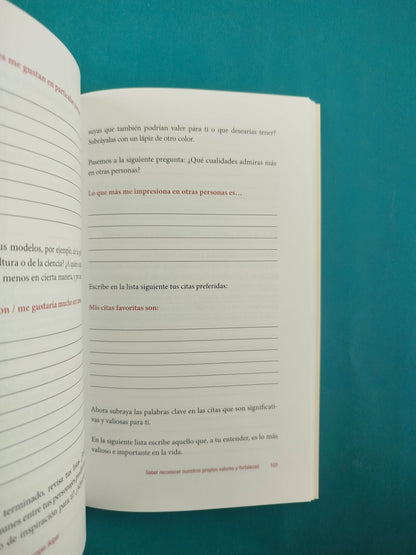 es me gustan en particular
us modelos, por ejemplo, de la
ltura o de la ciencia? ¿A quién
menos en cierta manera, y
on / me gustaría mucho
terminado, revisa tu lista
unes entre tus personajes
o de inspiración para ti
suyas que también podrían valer para ti o que desearías tener?
Subráyalas con un lápiz de otro color.
Pasemos a la siguiente pregunta: ¿Qué cualidades admiras más
en otras personas?
Lo que más me impresiona en otras personas es…
Escribe en la lista siguiente tus citas preferidas:
Mis citas favoritas son:
Ahora subraya las palabras clave en las citas que son significati-
vas y valiosas para ti.
En la siguiente lista escribe aquello que, a tu entender, es lo más
valioso e importante en la vida.
Saber reconocer nuestros propios valores y fortalezas 107